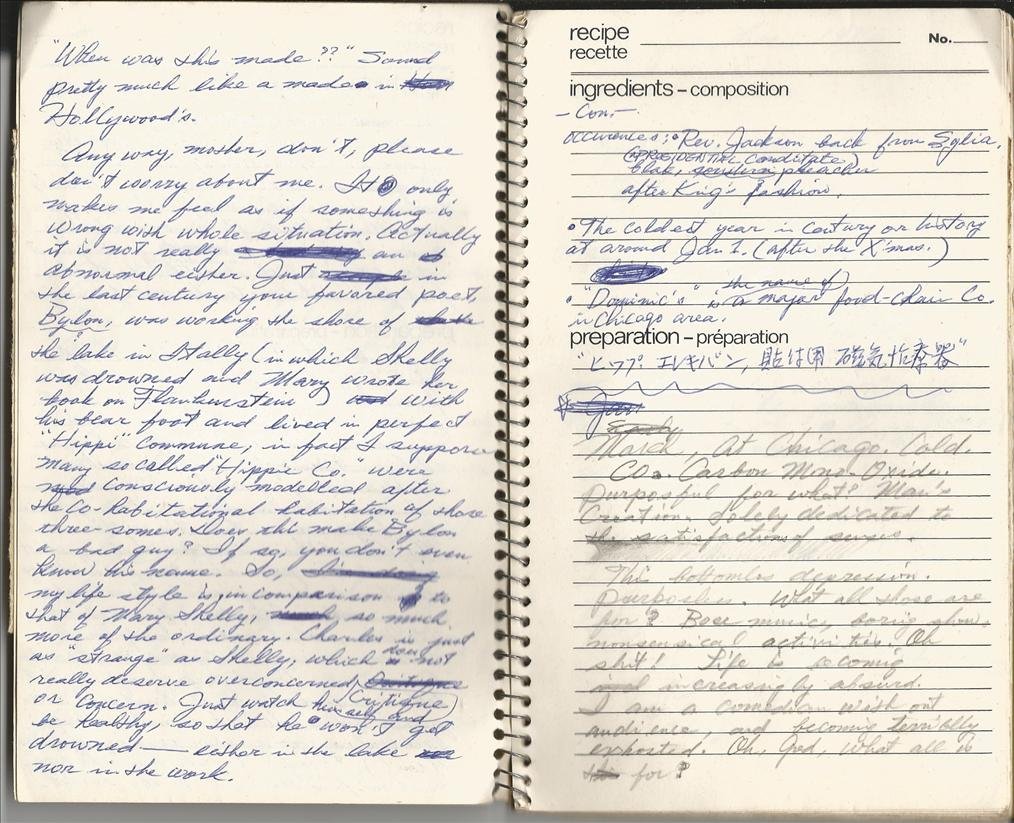 "When was this made??" Sound
pretty much like a made in
Hollywood's.
Any way, mother, don't, please
don't worry about me. It only
makes me feel as if something is
wrong with whole situation. Actually
it is not really an
abnormal either. Just in
the last century your favored poet,
Bylon, was working the shore of
the lake in Itally (in which Shelly
was drowned and Mary wrote her
book on Frankenstein) with
his bear foot and lived in perfect
"Hippi" commune; in fact I suppose
many so called "Hippie Co." were
consciously modelled after
the co-habitational habitation of those
three-somes. Does this make Bylon
a bad guy? If so, you don't even
know his name. So,
my life style is, in comparison to
that of Mary Shelly, so much
more of the ordinary. Charles is just
as "strange" as Shelly, which does not
really deserve overconcerned, (Critique)
or concern. Just watch himself and
be healthy, so that he won't get
drowned — either in the lake
nor in the work.
recipe
recette
No.
ingredients – composition
– Con. –
occurences; • Rev. Jackson back from Sylia.
(A PRESIDENTIAL canditate)
blak, preacher
after King's fashion.
• The coldest year in century or history
at around Jan 1. (after the X'mas.)
• "Dominic's" is the name of a major food-chain Co.
in Chicago area.
preparation – préparation
"ピップ エレキバン, 貼付用 磁気治療器"
March, At Chicago. Cold.
CO. Carbon Mono Oxide.
Purposful for what? Man's
Creation. Solely dedicated to
the satisfaction of senses.
This bottomles depression.
Purposless. What all those are
for? music, boring show,
nonsensical activities. Oh
shit! Life is
increasingly absurd.
I am a comedian with out
audience, and becoming terribly
exhosted. Oh, God, what all is
for?